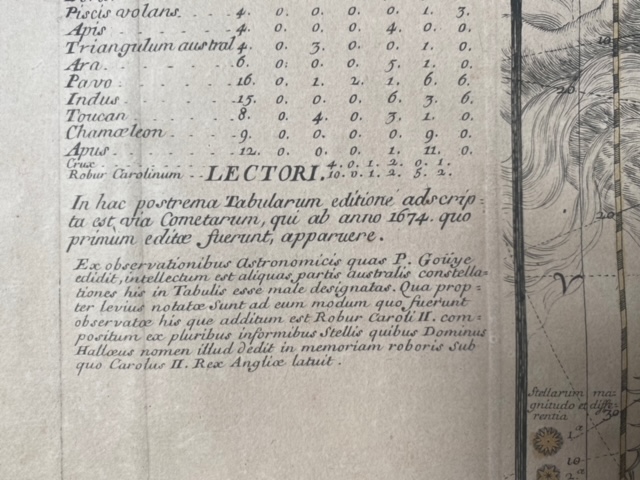 Piscis volans. 4. 0. 0. 0. 0. 1. 3.
Apis 4. 0. 0. 0. 4. 0. 0.
Triangulum austral 4. 0. 3. 0. 0. 1. 0.
Ara. 6. 0: 0. 0. 5. 1. 0.
Pavo 16. 0. 1. 2. 1. 6. 6.
Indus 15. 0. 0. 0. 6. 3. 6.
Toucan 8. 0. 4. 0. 3. 1. 0.
Chamæleon 9. 0. 0. 0. 0. 9. 0.
Apus 12. 0. 0. 0. 1. 11. 0.
Crux 4. 0. 1. 2. 0. 1.
Robur Carolinum 10. 0. 1. 2. 5. 2.
LECTORI.
In hac postrema Tabularum editione adscrip=
ta est, via Cometarum, qui ab anno 1674. quo
primùm editæ fuerunt, apparuere.
Ex observationibus Astronomicis quas P. Goüye
edidit, intellectum est aliquas partis australis constella=
tiones his in Tabulis esse male designatas. Qua prop=
ter levius notatæ Sunt ad eum modum quo fuerunt
observatæ his que additum est Robur Caroli II. com=
positum ex pluribus informibus Stellis quibus Dominus
Hallæus nomen illud dedit in memoriam roboris Sub
quo Carolus II. Rex Angliæ latuit.
10
20
20
V
Stellarum ma=
gnitudo et diffe=
rentia
30
1ª
10
2ª